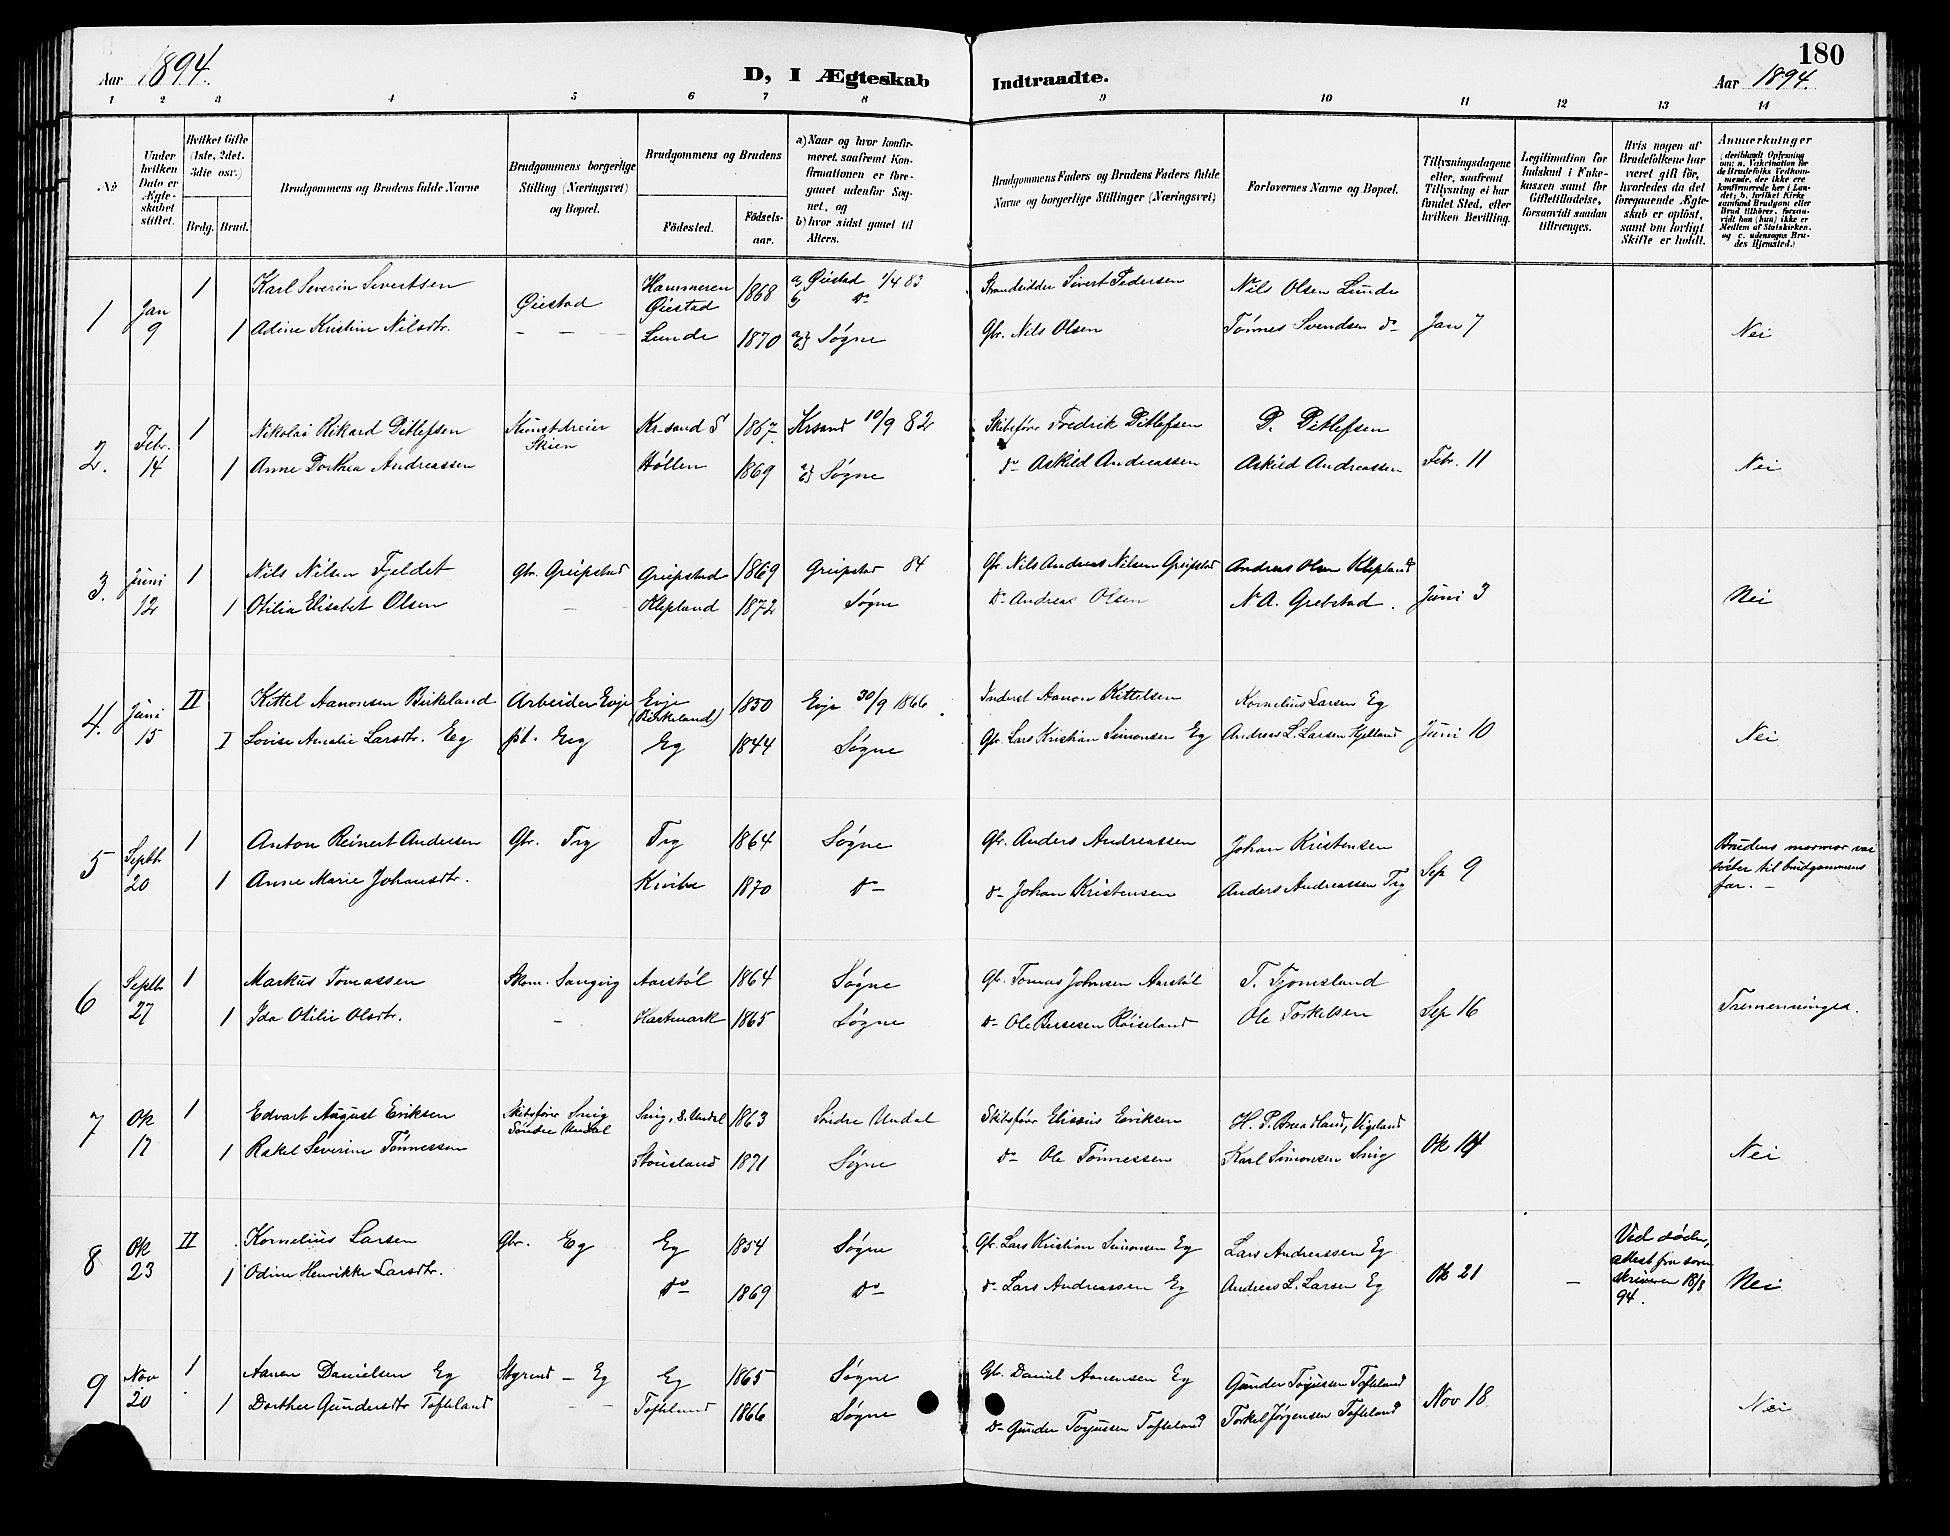 180
Aar 1894.
D, I Ægteskab Indtraadte.
Aar 1894.
1 2 3 4 5 6 7 8 9 10 11 12 13 14
No
Under hvilken Dato er Ægteskabet stiftet.
Hvilket Gifte (1ste, 2det, 3die osv.)
Brdg. Brud.
Brudgommens og Brudens fulde Navne
Brudgommens borgerlige Stilling (Næringsvei) og Bopæl.
Brudgommens og Brudens
Födested.
Födsels-aar.
a) Naar og hvor konfirmeret, saafremt Konfirmationen er foregaaet udenfor Sognet, og
b) hvor sidst gaaet til Alters.
Brudgommens Faders og Brudens Faders fulde Navne og borgerlige Stillinger (Næringsvei)
Forlovernes Navne og Bopæl.
Tillysningsdagene eller, saafremt Tillysning ei har fundet Sted, efter hvilken Bevilling.
Legitimation for Indskud i Enkekassen samt for Giftetilladelse, forsaavidt saadan tiltrænges.
Hvis nogen af Brudefolkene har været gift för, hvorledes da det foregaaende Ægteskab er oplöst, samt om lovligt Skifte er holdt.
Anmærkninger
1 Jan 9 1 Karl Severin Sivertsen Øiestad Hammeren Øiestad 1868 a) Øiestad 1/4 83 b) do Strandsidder Sivert Pedersen Nils Olsen Lunde Jan 7
1 Adine Kristine Nilsdtr. — — — Lunde 1870 Søgne Gbr. Nils Olsen Tønnes Svendsen do Nei
2. Febr. 14 1 Nikolai Rikard Ditlefsen Kunstdreier Skien Kr-sand S 1867. Krsand 10/9 82 Skibsfører Fredrik Ditlefsen D. Ditlefsen Febr. 11
1 Anne Dorthea Andreassen Høllen 1869 Søgne do Askild Andreassen Askild Andreassen Nei
3. Juni 12 1 Nils Nilsen Fjeldet Gbr. Greipstad Greipstad 1869 Greipstad 84 Gbr. Nils Andreas Nilsen Greipstad Andreas Olsen Klepland Juni 3
1 Otilia Elisabet Olsen — Klepland 1872 Søgne do Andreas Olsen N. A. Grebstad. Nei
4. Juni 15 II Kittel Aanonsen Birkeland Arbeider Evje Evje (Birkeland) 1850 Evje 30/9 1866 Inderst Aanon Kittelsen Kornelius Larsen Eg Juni 10
I Lovise Amalie Larsdtr. Eg Eg Eg 1844 Søgne Gbr. Lars Kristian Simonsen Eg Andreas L. Larsen Nei
5 Septbr 20 1 Anton Reinert Andersen Gbr. Try Try 1864 Søgne Gbr. Anders Andreassen Johan Kristensen Sep 9 Brudens mormor var søster til brudgommens far. —
1 Anne Marie Johansdtr. 1870 do do Johan Kristensen Anders Andreassen Try
6 Septbr 27 1 Markus Tomassen Skom. Langvig Aarstøl 1864 Søgne Gbr. Tomas Johnsen Aarstøl T. Tjomsland Sep 16 Tremenninger.
1 Ida Otilie Olsdtr. — Hastmark 1865 Søgne do Ole Røiseland Ole Torkelsen
7 Ok 17 1 Edvart August Eriksen Skibsfører Snig Søndre Undal Snig, S. Undal 1863 Søndre Undal Skibsfører Elissius Eriksen H. P. Vigeland Ok 14
1 Rakel Severine Tønnessen Stousland 1871 Søgne do Ole Tønnessen Karl Simonsen Snig Nei
8 Ok 23 II Kornelius Larsen Gbr. Eg Eg 1854 Søgne Gbr. Lars Kristian Simonsen Eg Lars Andreassen Eg Ok 21 — Ved døden, attest fra sorenskriveren 18/8 94.
1 Odine Henrikke Larsdtr. do 1869 do do Lars Andreassen Eg Andreas L. Larsen Eg Nei
9 Nov 20 1 Aanen Danielsen Eg Styrmd — Eg Eg 1865 Søgne Gbr. Daniel Aanensen Eg Gunder Torjussen Tofteland Nov 18
1 Dorthee Gundersdtr Tofteland — — Tofteland 1866 Søgne do Gunder Torjussen Tofteland Torkel Jørgensen Tofteland Nei